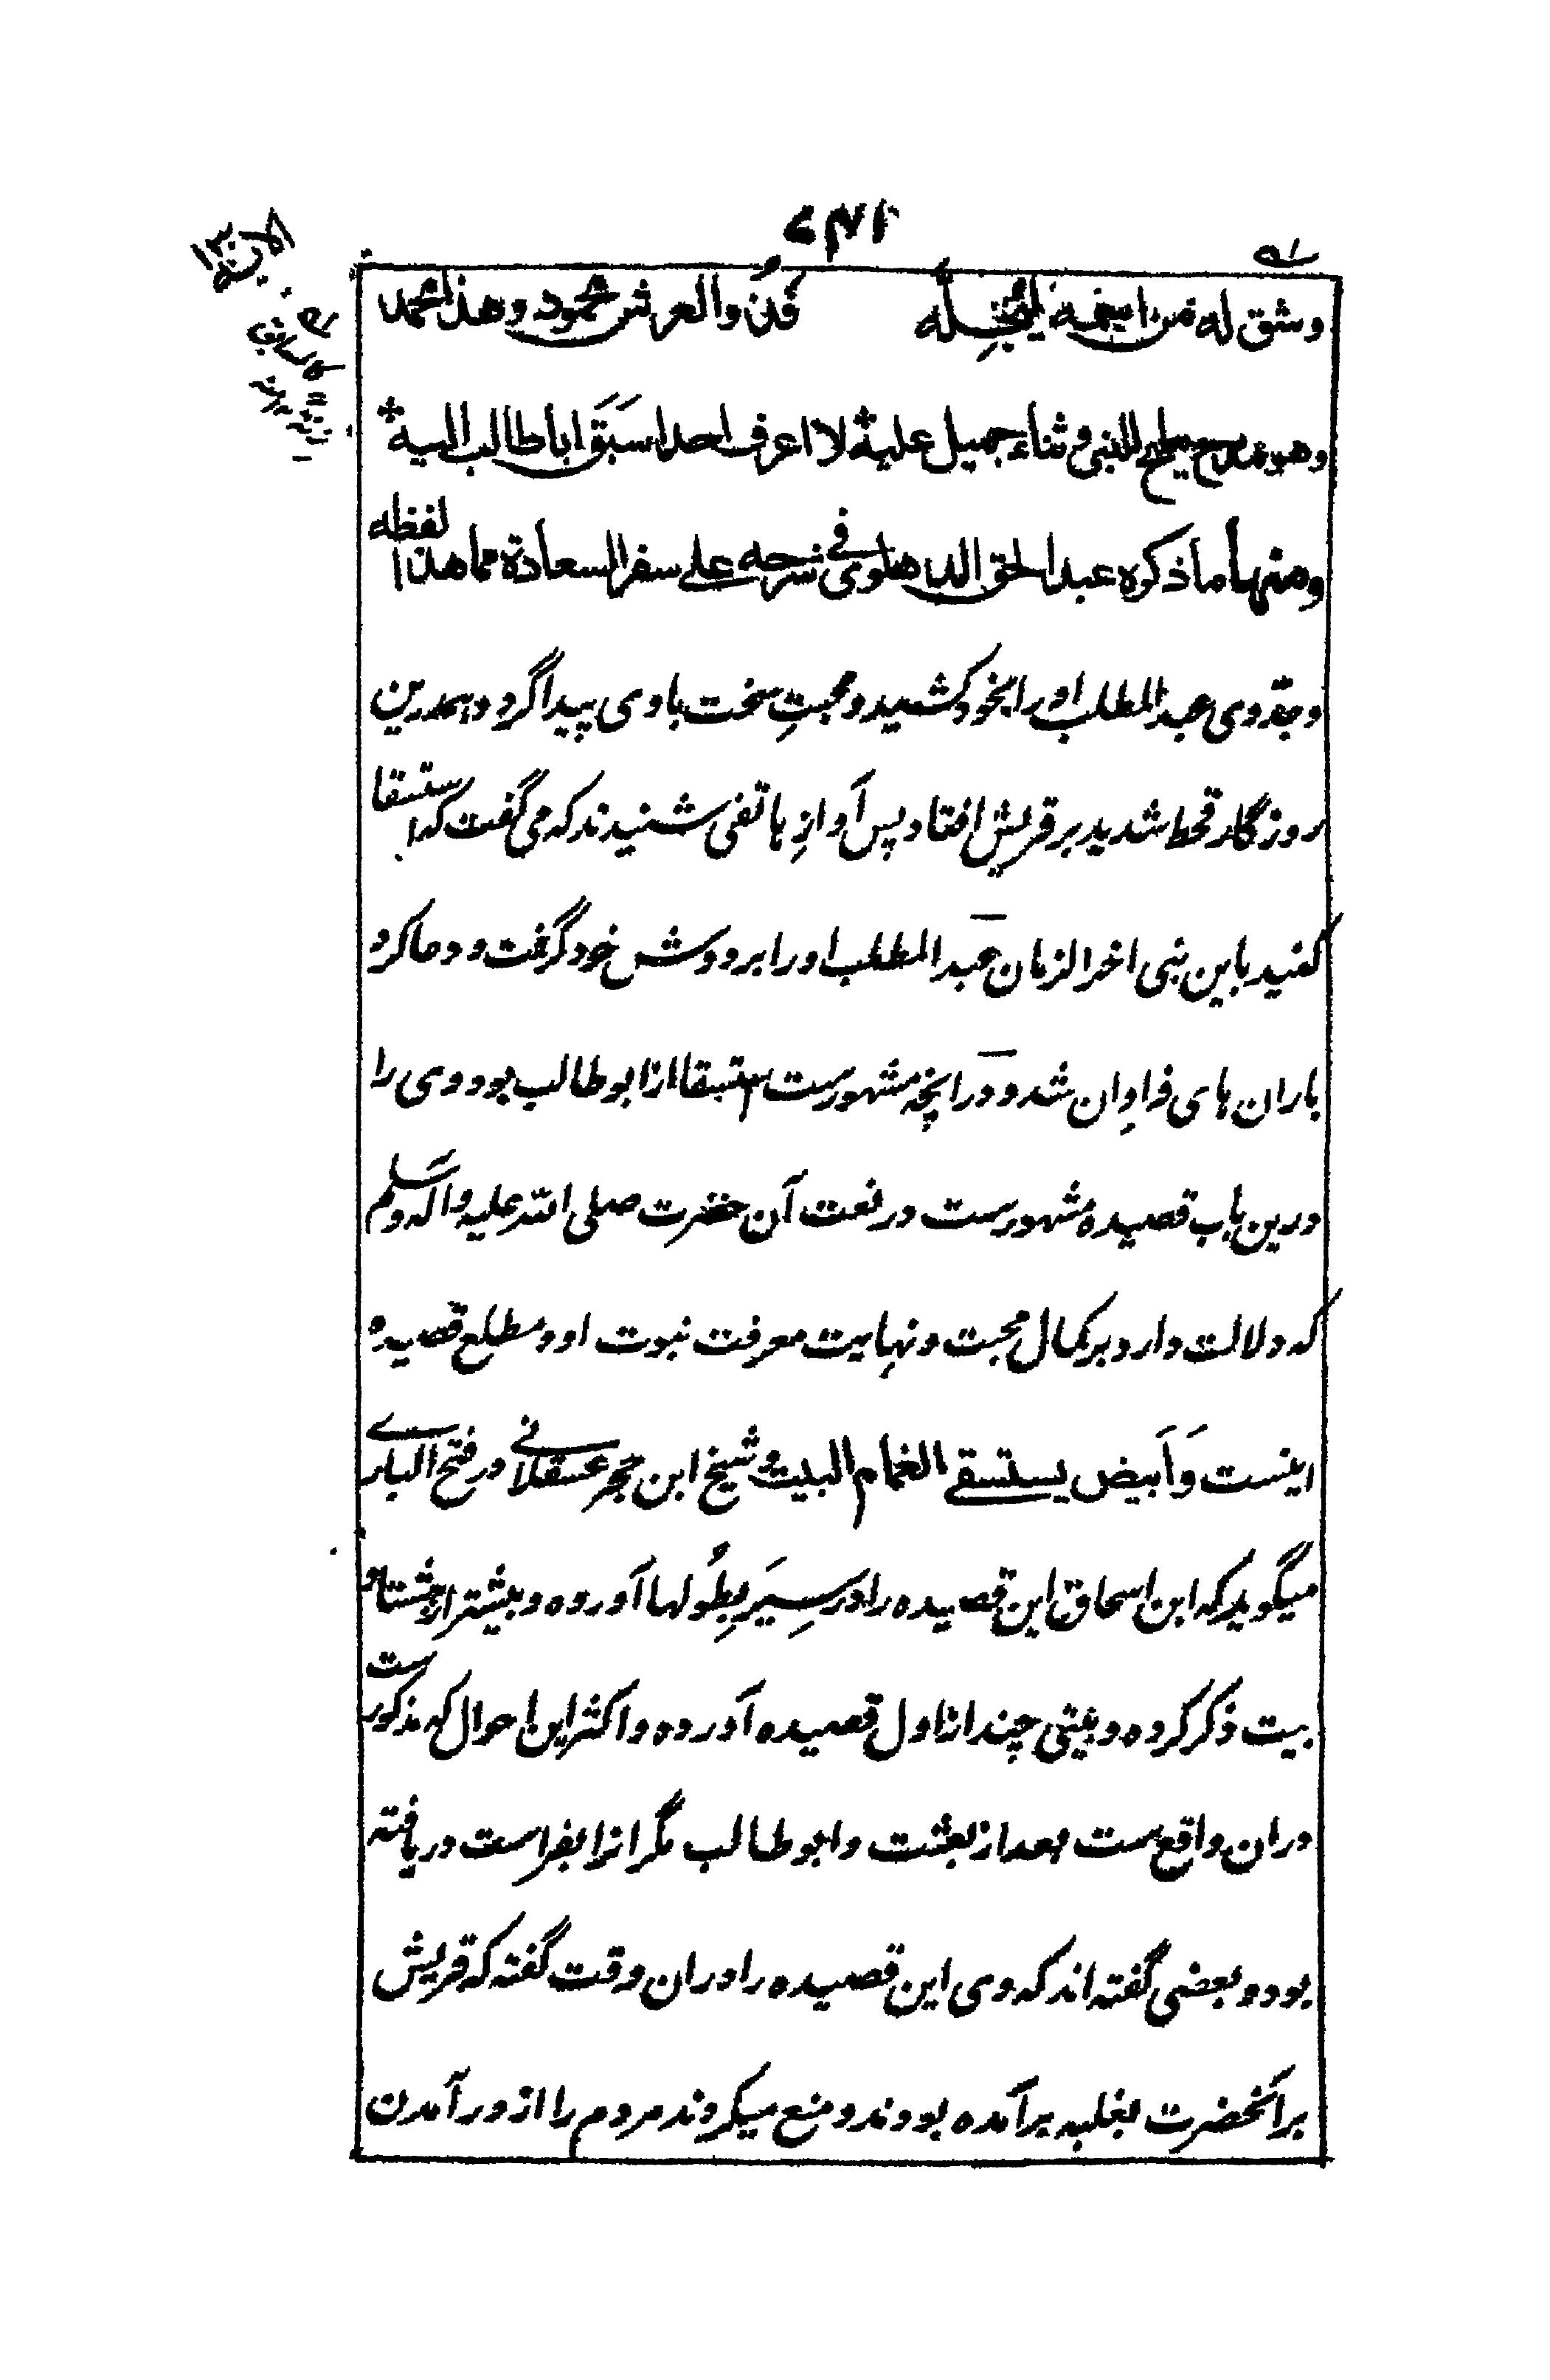 وشق له من اسمه ليجله فذو العرش محمود وهذا محمد
وهو مدح مليح للنبي وثناء جميل عليه لا اعرف احدا سَبَقَ اباطالب اليه
ومنها ما ذكره عبد الحق الدهلوي في شرحه على سفر السعادة مما هذا لفظه
وجدّ وی عبد المطلب او را بخود کشید و محبتِ سخت با وی پیدا کرد و همدرین
روزگار قحط شدید بر قریش افتاد پس آوازِ هاتفی شنیدند که می گفت که استسقا
کنید باین نبی اخر الزمان عبد المطلب او را بر دوش خود گرفت و دعا کرد
باران های فراوان شد و در انچه مشهورست استسقا از ابو طالب بود و وی را
درین باب قصیده مشهورست در نعت آن حضرت صلی الله علیه و آله وسلم
که دلالت دارد بر کمال محبت و نهایت معرفت نبوت او و مطلع قصیده
اینست وَاَبیض یستسقی الغمام البیت و شیخ ابن حجر عسقلانی در فتح الباری
میگوید که ابن اسحاق این قصیده را در سِیَر بِطُولها آورده و بیشتر از هشتاد
بیت ذکر کرده و بیتی چند از اول قصیده آورده و اکثر این احوال که مذکورست
دران واقع ست بعد از بعثت و ابو طالب مگر انرا بفراست دریافته
بود و بعضی گفته اند که وی این قصیده را دران وقت گفته که قریش
بر آنحضرت بغلبه برآمده بودند و منع میکردند مردم را از در آمدن